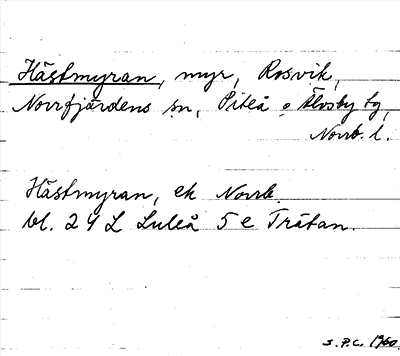 Hästmyran, myr, Rosvik,
Norrfjärdens sn, Piteå o Älvsby tg,
Norrb. l.
Hästmyran, ek Norrb.
bl. 24 L Luleå 5 e Trätan.
S.P.C. 1960